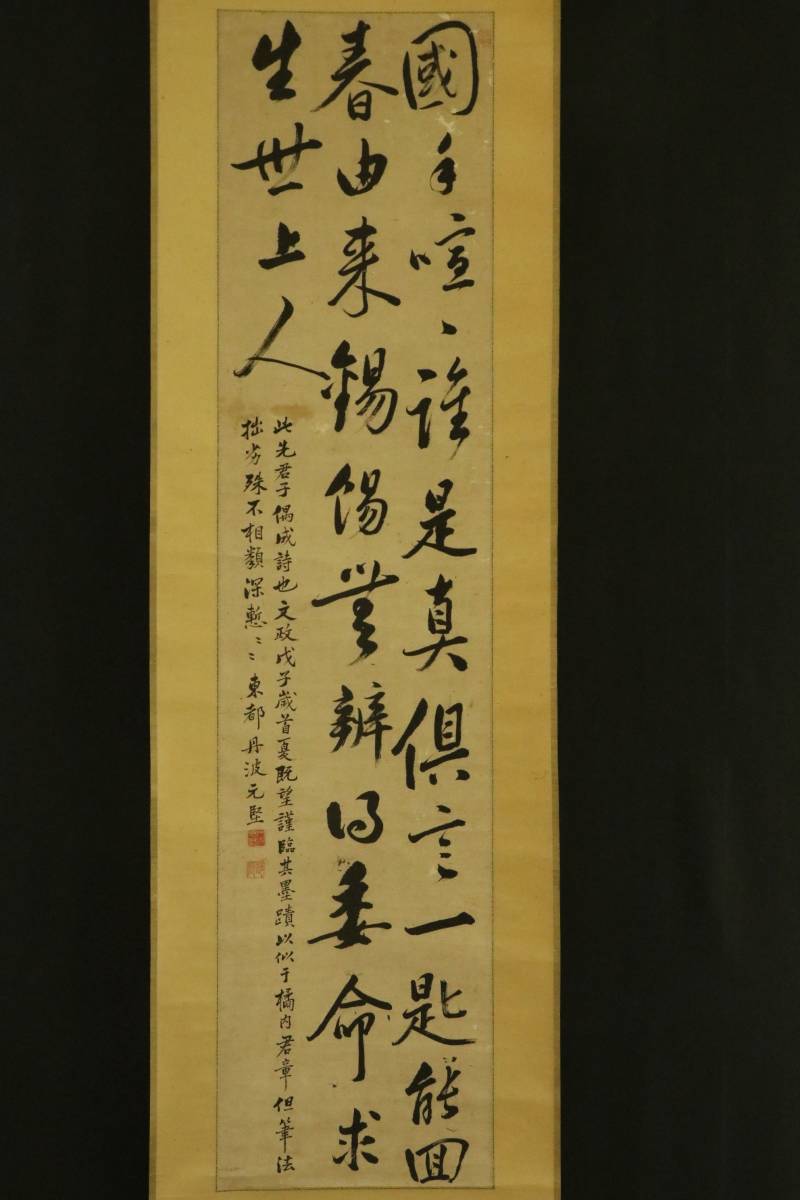 國手喧〻誰是真俱言一匙能回
春由来錫餳無辨得委命求
生世上人
此先君子偶成詩也文政戊子歳首夏既望謹臨其墨蹟以似于橘内君章但筆法
拙劣殊不相類深慙〻〻東都丹波元堅